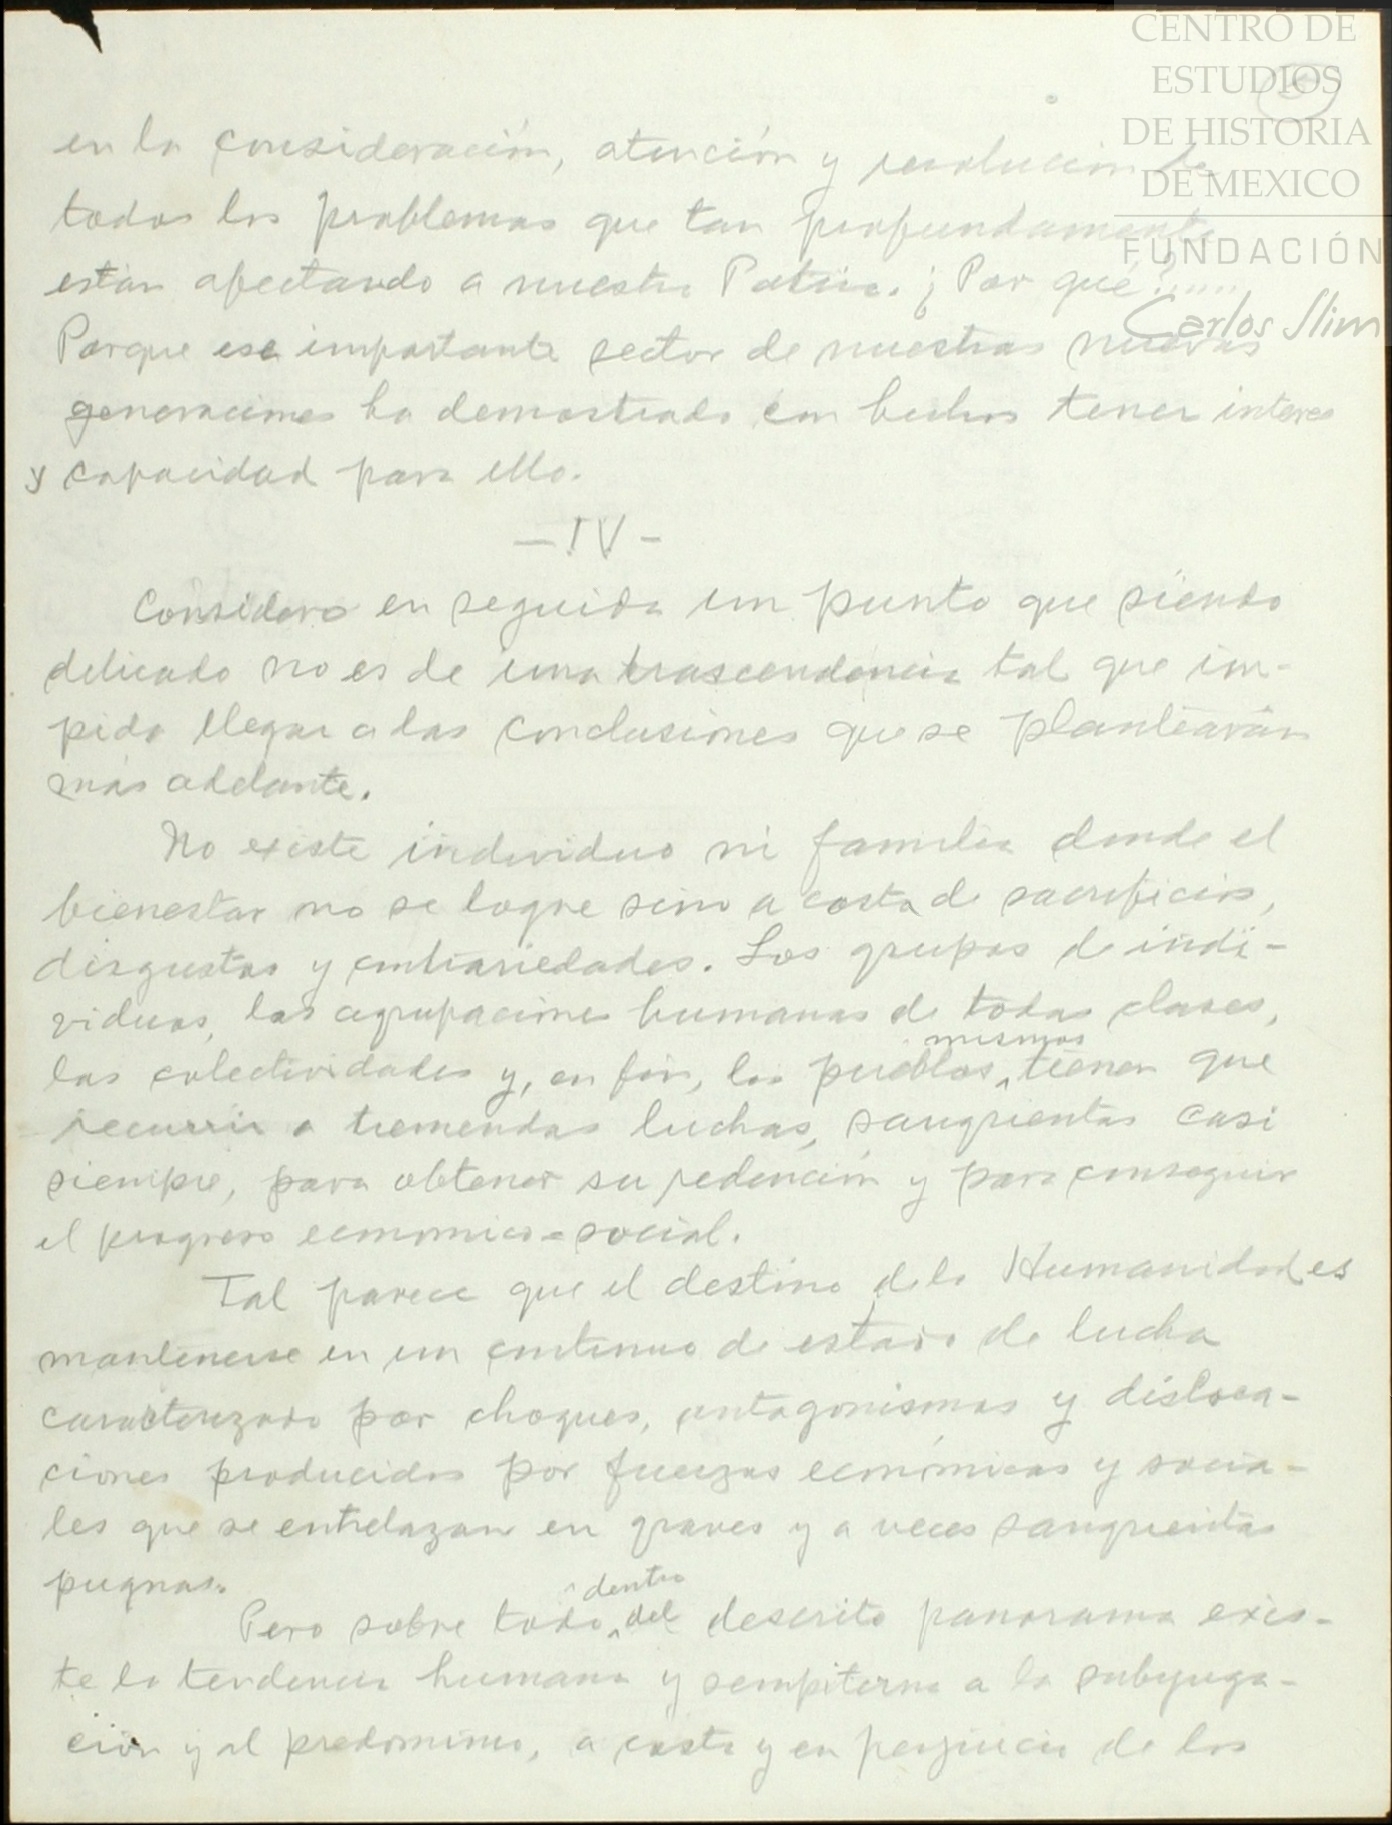 CENTRO DE
ESTUDIOS
DE HISTORIA
DE MEXICO
FUNDACIÓN
Carlos Slim
en la consideración, atención y resolución de
todos los problemas que tan profundamente
están afectando a nuestra Patria. ¿Por qué?.....
Porque ese importante sector de nuestras nuevas
generaciones ha demostrado con hechos tener interes
y capacidad para ello.
— IV —
Considero en seguida un punto que siendo
delicado no es de una trascendencia tal que im-
pida llegar a las conclusiones que se plantearán
más adelante.
No existe individuo ni familia donde el
bienestar no se logre sino a costa de sacrificios,
disgustos y contrariedades. Los grupos de indi-
viduos, las agrupaciones humanas de todas clases,
las colectividades y, en fin, los pueblos mismos tienen que
recurrir a tremendas luchas, sangrientas casi
siempre, para obtener su redención y para conseguir
el progreso economico-social.
Tal parece que el destino de la Humanidad es
mantenerse en un continuo de estado de lucha
caracterizado por choques, antagonismos y disloca-
ciones producidos por fuerzas económicas y socia-
les que se entrelazan en graves y a veces sangrientas
pugnas.
Pero sobre todo, dentro del descrito panorama exis-
te la tendencia humana y sempiterna a la subyuga-
ción y al predominio, a costa y en perjuicio de los